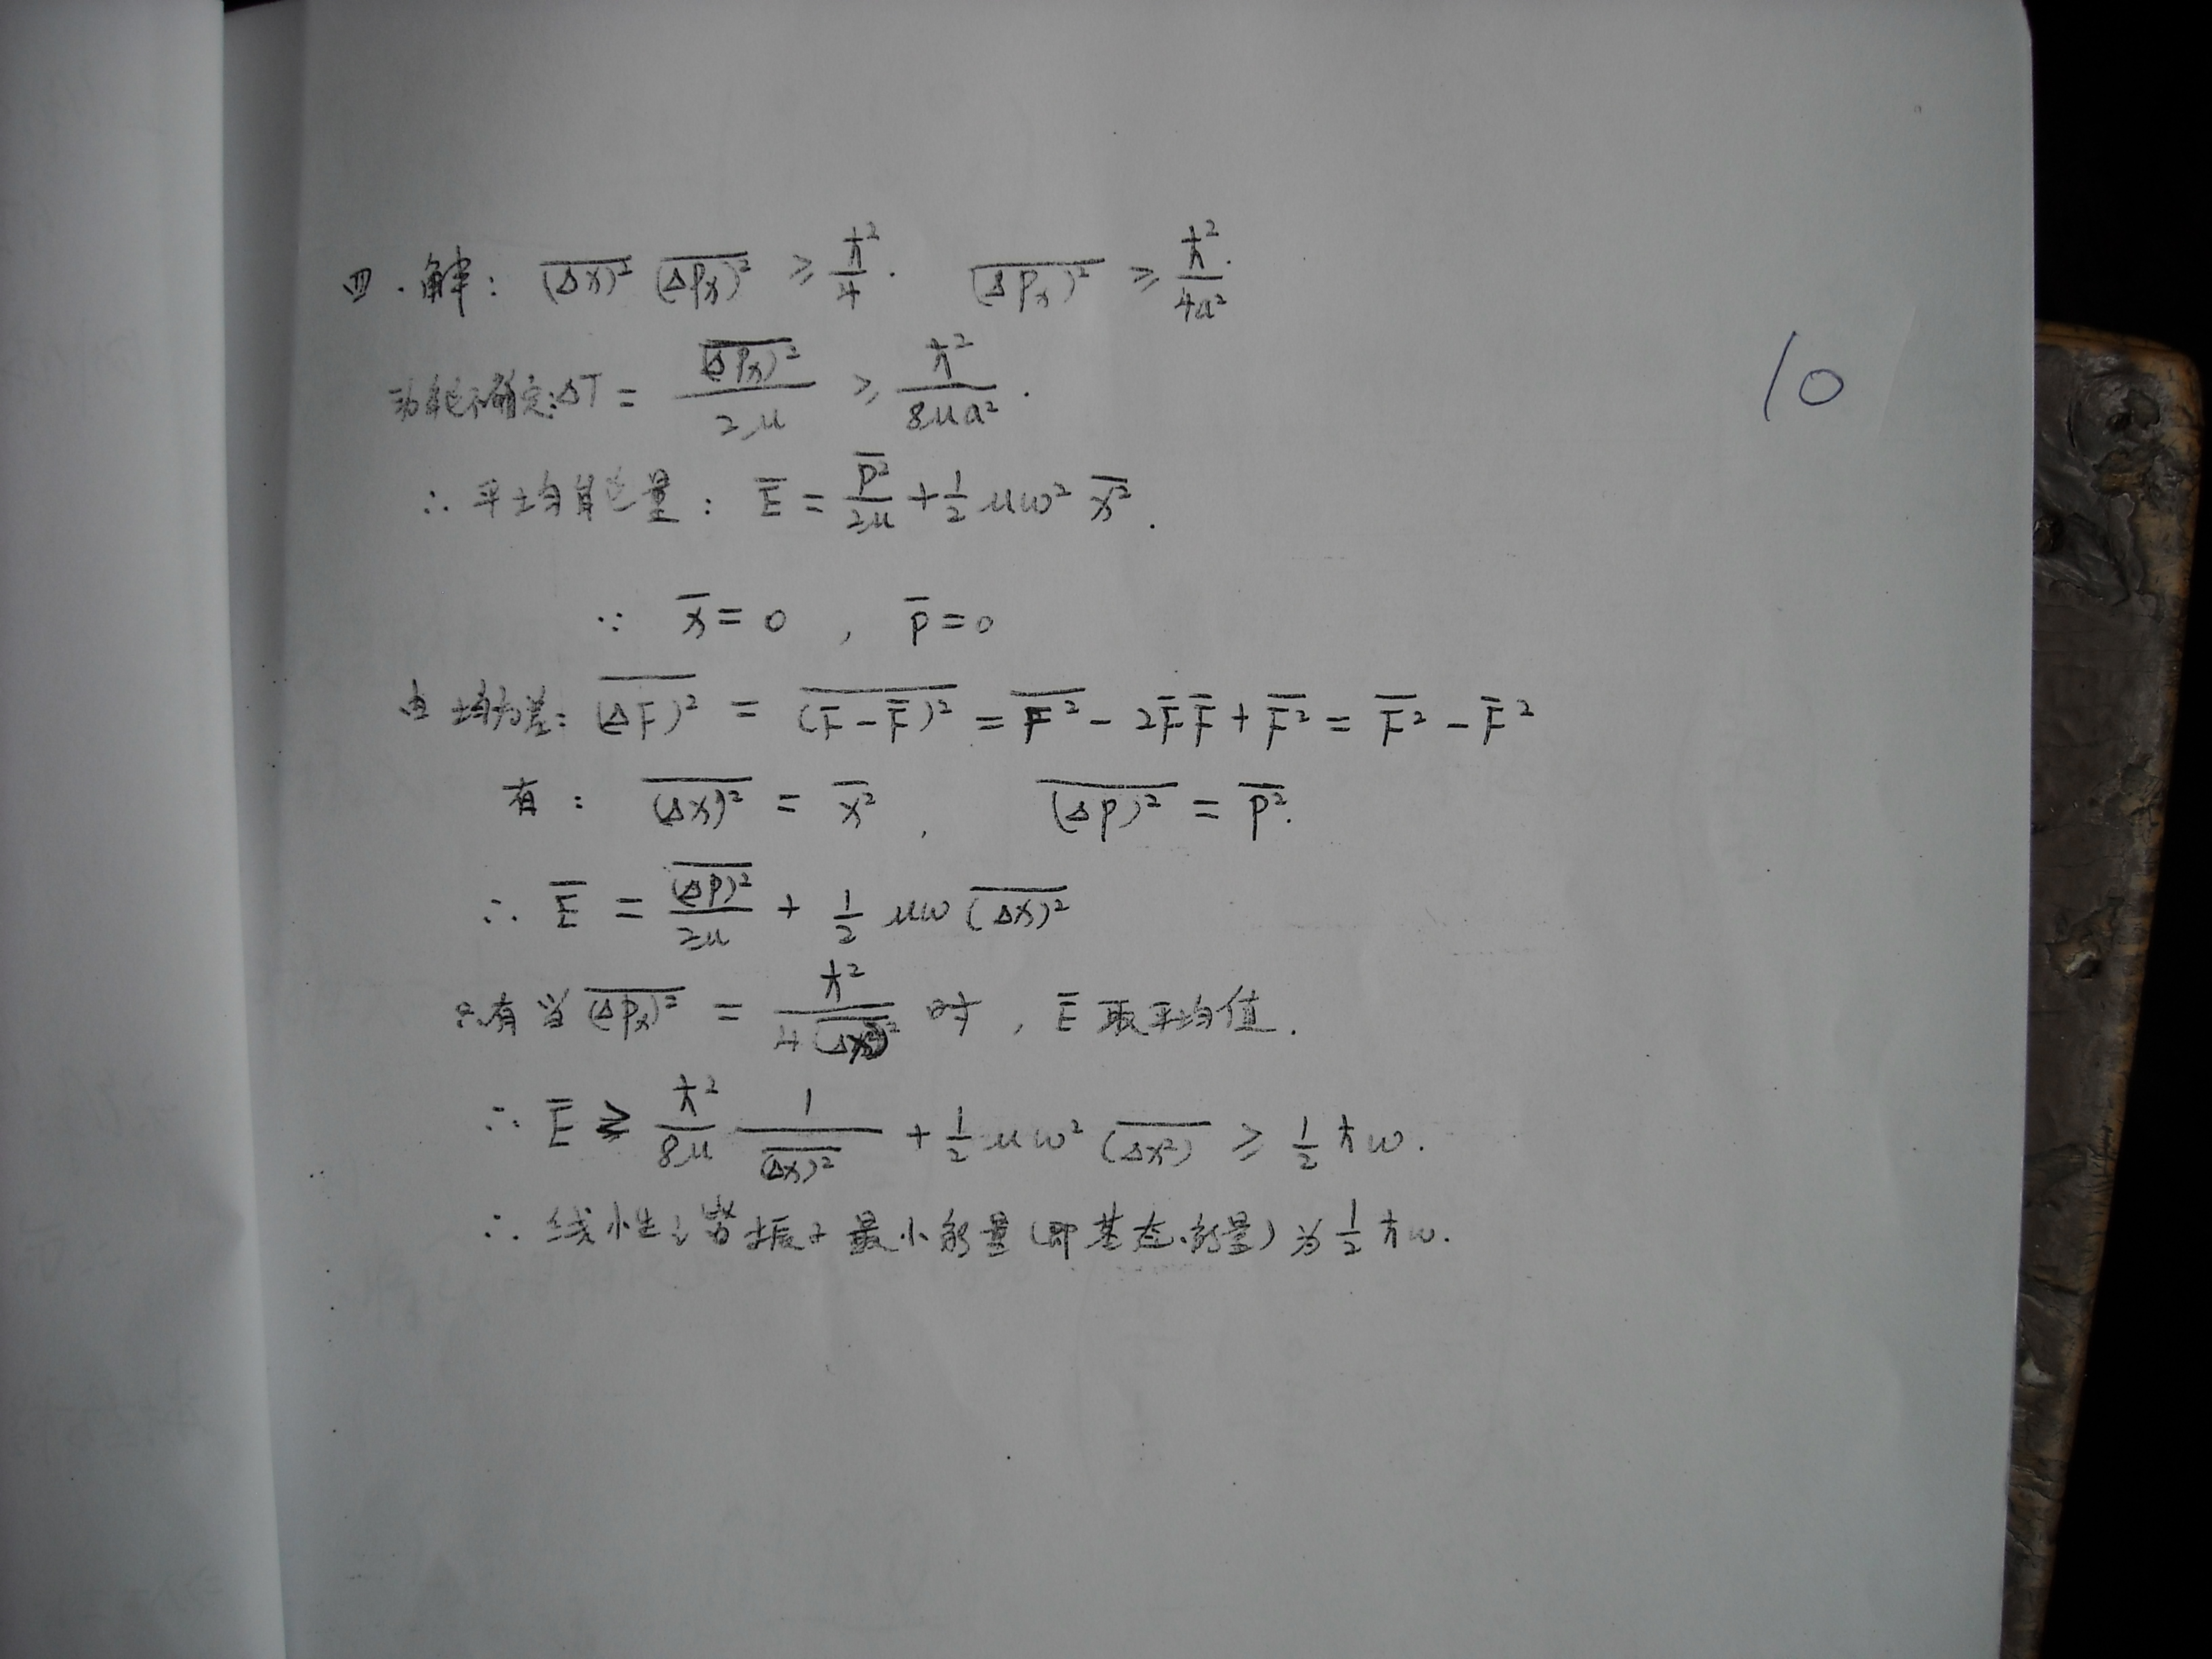 四.解: $\overline{(\Delta x)^2}\ \overline{(\Delta p_x)^2} \geq \frac{\hbar^2}{4}.$ $\overline{(\Delta p_x)^2} \geq \frac{\hbar^2}{4a^2}.$
动能不确定:$\Delta T = \frac{\overline{(\Delta p_x)^2}}{2\mu} \geq \frac{\hbar^2}{8\mu a^2}.$
10
∴ 平均能量: $\overline{E} = \frac{\overline{p^2}}{2\mu} + \frac{1}{2}\mu\omega^2\overline{x^2}.$
∵ $\overline{x} = 0$ , $\overline{p} = 0$
由均方差: $\overline{(\Delta F)^2} = \overline{(F-\overline{F})^2} = \overline{F^2} - 2\overline{F}\,\overline{F} + \overline{F}^2 = \overline{F}^2 - \overline{F}^2$
有: $\overline{(\Delta x)^2} = \overline{x^2}$ , $\overline{(\Delta p)^2} = \overline{p^2}.$
∴ $\overline{E} = \frac{\overline{(\Delta p)^2}}{2\mu} + \frac{1}{2}\mu\omega\overline{(\Delta x)^2}$
只有当 $\overline{(\Delta p_x)^2} = \frac{\hbar^2}{4\overline{(\Delta x)^2}}$ 时, $\overline{E}$ 取平均值.
∴ $\overline{E} \geq \frac{\hbar^2}{8\mu}\frac{1}{\overline{(\Delta x)^2}} + \frac{1}{2}\mu\omega^2\overline{(\Delta x^2)} \geq \frac{1}{2}\hbar\omega.$
∴ 线性谐振子最小能量(即基态能量)为 $\frac{1}{2}\hbar\omega.$